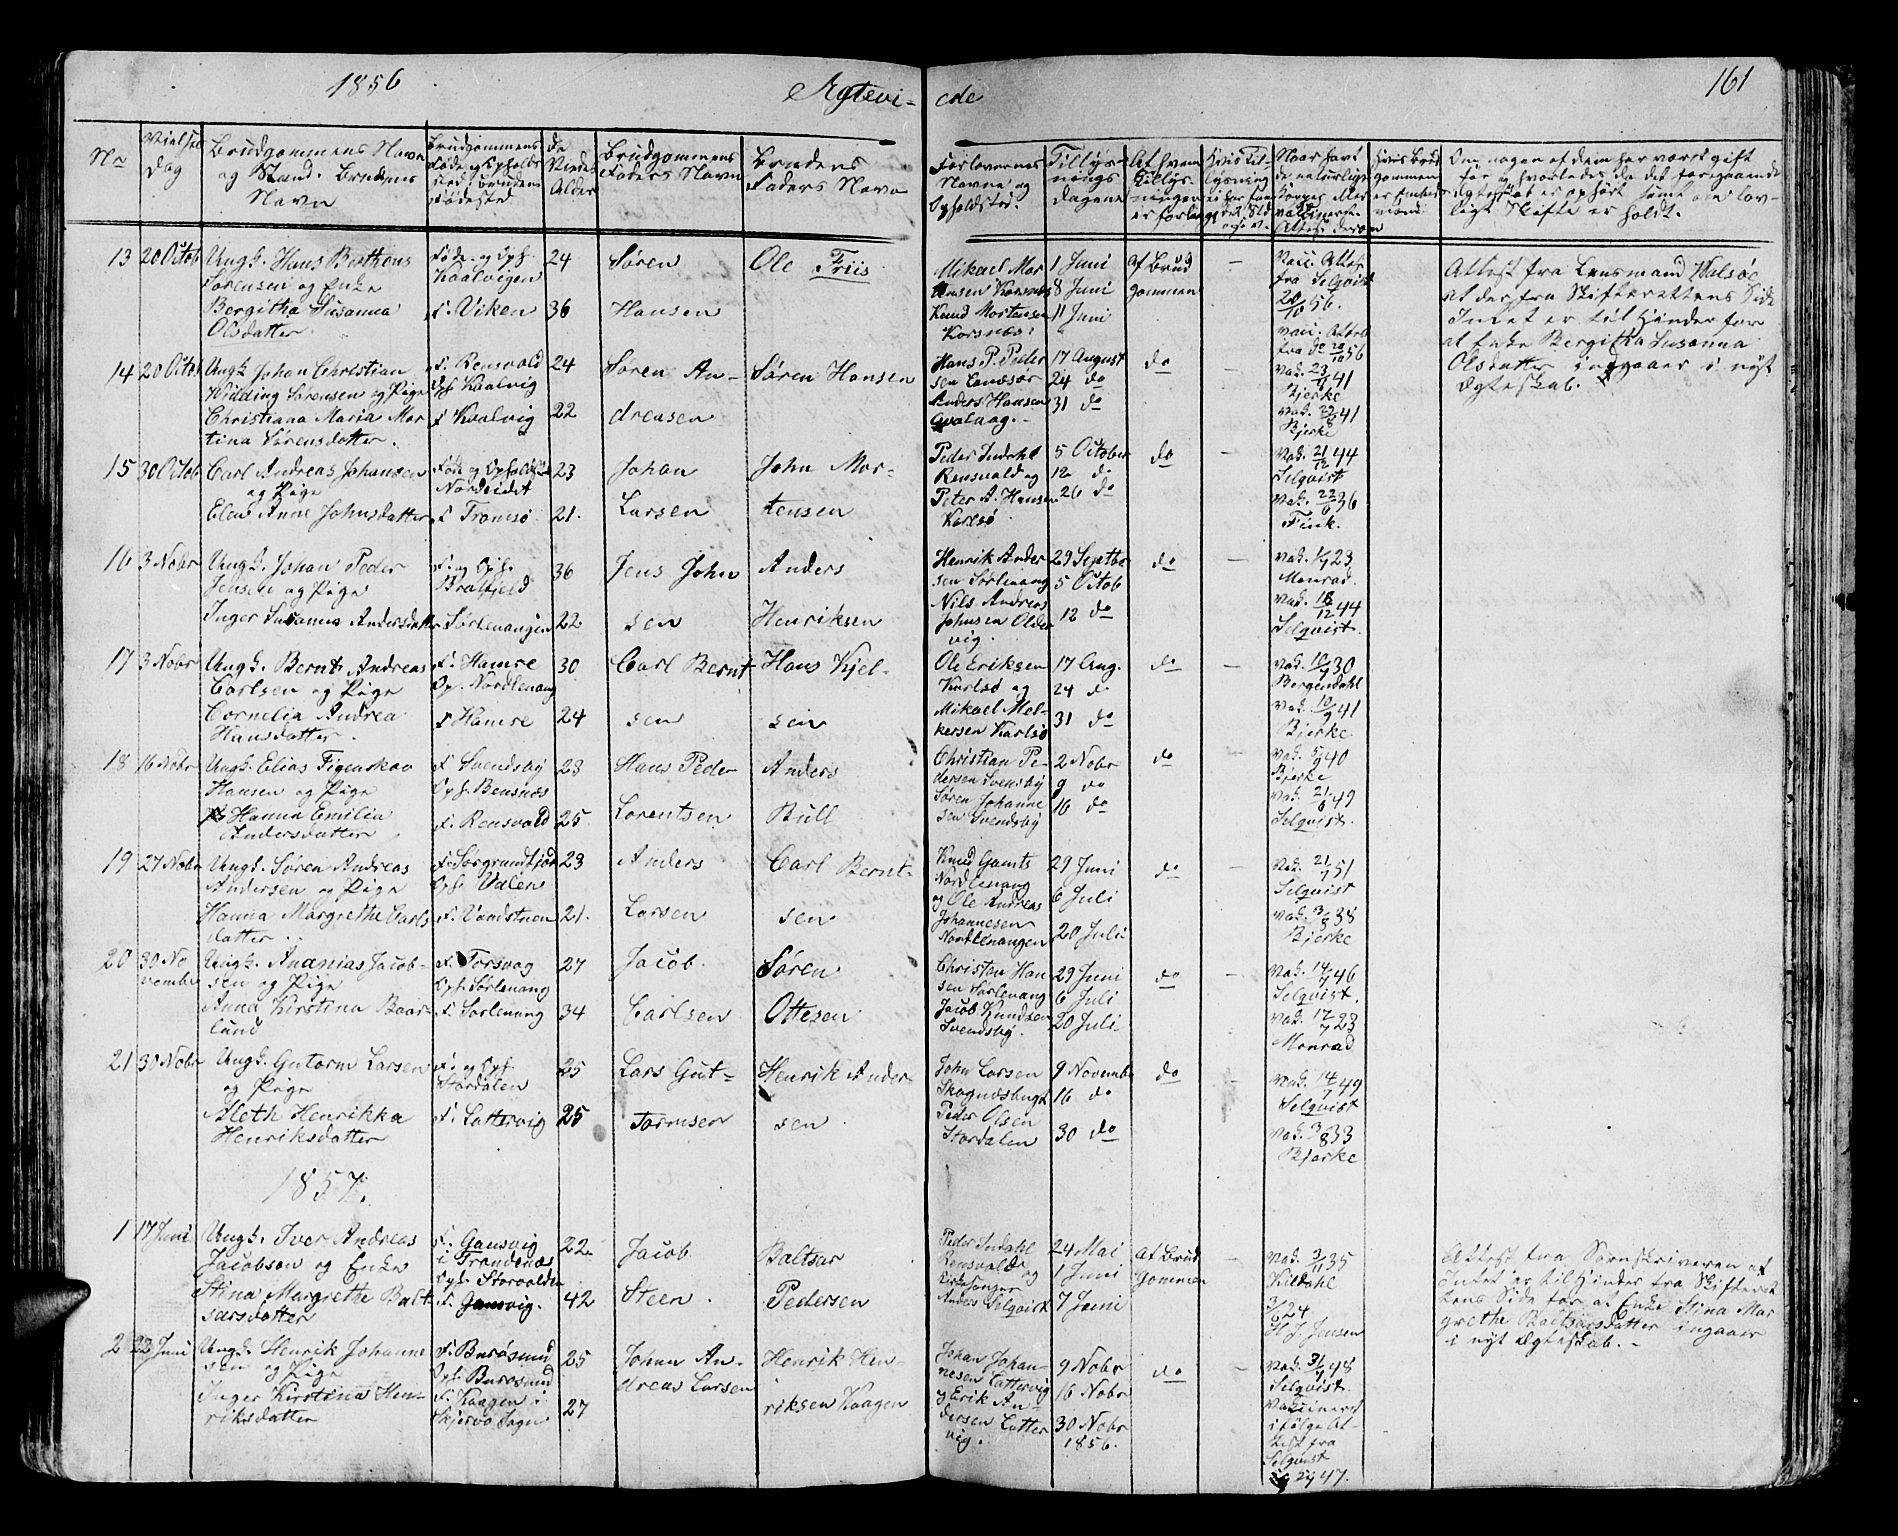 1856
Ægtevi-
ede
161
Nr
Vielses
Dag
Brudgommens Navn
og Stand. Brudens
Navn
Brudgommens
Føde og Opholds
sted. Brudens
Fødested
Alder
Brudgommens
Faders Navn
Brudens
Faders Navn
Forlovernes
Navne og
Opholdsted.
Tillys-
nings
dagene
Af hvem
Tillys-
ningen
er forlangt
Om nogen af dem har været gift
før og hvorledes da det foregaaende
Ægteskab er ophørt samt om lov-
ligt Skifte er holdt.
13 20 Octob
Ungk. Hans Bertheus
Sørensen og Enke
Bergitha Susanna
Olsdatter
Føde- og Oph.
Kaalvigen
F. Viken
24
36
Søren
Hansen
Ole Friis
Mikael Mor
tensen Korsnæs
Knud Mortensen
Korsnæs
1 Juni
8 Juni
11 Juni
Af Brud
gommen
Vacc. Attest
fra Selqvist
20/10 56.
Vacc. Attest
fra do 20/10 56
Attest fra Lensmand Walsøe
at der fra Skifterettens Side
Intet er til Hinder for
at Enke Bergitha Susanna
Olsdatter indgaaer i nyt
Ægteskab.
14 20 Octob
Ungk. Johan Christian
Widding Sørensen og Pige
Christiana Maria Mar
tina Sørensdatter.
F. Rensvold
Oph. Kaalvig
F Kaalvig
24
22
Søren An-
dreasen
Søren Hansen
Hans P. Peder
sen
Anders Hansen
17 August
24 do
31 do
do
Vac. 23/8 41
Bjerke
Vac. 23/8 41
Bjerke
15 30 Octob
Carl Andreas Johansen
og Pige
Elen Anne Johnsdatter
Nordeidet
F Tromsø
23
21.
Johan
Larsen
John Mor-
tensen
Peder Indahl
Rensvold og
Peter A. Hansen
Karlsø
5 October
12 do
26 do
do
Vac. 21/12 44
Selqvist
Vac. 22/6 36
Fink.
16 3 Nobr
Ungk. Johan Peder
Jensen og Pige
Inger Susanna Andersdatter
F. og Oph.
F Sørlenangen
36
22
Jens John
sen
Anders
Henriksen
Henrik Ander
sen Sørlenang
Nils Andreas
Johnsen Older
vig.
29 Septbr
5 Octob
12 do
do
Vac. 1/7 23
Monrad.
Vac. 18/12 44
Selqvist.
17 3 Nobr
Ungk. Bernt Andreas
Carlsen og Pige
Cornelia Andrea
Hansdatter
F. Hamre
Oph. Nordlenang
F Hamre
30
24
Carl Bernt
sen
Hans Kjel-
sen
Ole Eriksen
Karlsø og
Mikael Mel-
kersen Karlsø
17 Aug.
24 do
31 do
do
Vac. 10/9 30
Borgendahl
Vac. 10/9 41
Bjerke
18 16 Nobr
Ungk. Elias Figenskov
Hansen og Pige
Hanna Emilia
Andersdatter
F Svendsby
Oph. Bensnæs
F. Rensvold
23
25
Hans Peder
Lorentsen
Anders
Bull
Christian Pe-
dersen Svensby
Søren Johanne
sen Svendsby
2 Nobr
9 do
16 do
do
Vac. 5/9 40
Bjerke
Vac. 21/6 49
Selqvist.
19 27 Nobr
Ungk. Søren Andreas
Andersen og Pige
Hanna Margrethe Carls
datter
F. Sørgrundfjord
Oph. Valen
F. Vandstuen
23
21.
Anders
Larsen
Carl Bernt-
sen
Knud Gamts
Nordlenang
og Ole Andreas
Johannesen
Nordlenangen
29 Juni
6 Juli
20 Juli
do
Vac. 21/7 51
Selqvist
Vac. 3/8 38
Bjerke
20 30 No
vember
Ungk. Ananias Jacob-
sen og Pige
Anna Kirstina Baar-
lund
F. Torsvog
Oph. Sørlenang
F. Sørlenang
27
34
Jacob
Carlsen
Søren
Ottesen
Christen Han
sen Sørlenang
Jacob Knudsen
Svendsby.
29 Juni
6 Juli
20 Juli
do
Vac. 14/7 46
Selqvist.
Vac. 17/7 23
Monrad
21 30 Nobr
Ungk. Gutorm Larsen
og Pige
Aleth Henrikka
Henriksdatter
F. og Oph.
Stordalen
F. Lattervig
25
25
Lars Gut-
tormsen
Henrik Ander-
sen
John Larsen
Peder Olsen
Stordalen
9 Novembr
16 do
30 do
do
Vac. 14/7 49
Selqvist
Vac. 3/8 33
Bjerke
1857.
1 17 Juni
Ungk. Iver Andreas
Jacobsen og Enke
Stina Margrethe Balt
sarsdatter
F. Gausvig
i Trondenæs
F. Gausvig.
22
42
Jacob
Steen
Baltsar
Pedersen
Peder Indahl
Rensvold og
Kirkesanger
Anders Selqvist
24 Mai
1 Juni
7 Juni
Af Brud
gommen
Vac. 3/11 35
Kildahl
3/8 24
H J. Jensen
Attest fra Sorenskriveren at
Intet er til Hinder fra Skifteret
tens Side for at Enke Stina Mar
grethe Baltsarsdatter ingaaer
i nyt Ægteskab.
2 22 Juni
Ungk. Henrik Johanne
sen og Pige
Inger Kirstina Hen-
riksdatter
F. Burøsund
Oph. Burøsund
F. Kaagen i
Skjervø Sogn
25
27
Johan An-
dreas Larsen
Henrik Hen-
riksen Kaagen
Johan Johan-
nesen Lattervig
og Erik An-
dersen Latter
vig.
9 Nobr
16 Nobr
30 Nobr
1856.
do
Vac. 31/7 48
Selqvist.
Vaccineret
ifølge At-
test fra
Selqvist
47.